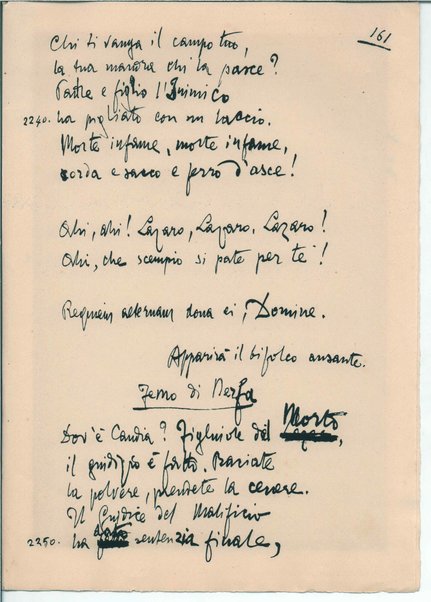 161
Chi ti vanga il campo tuo,
la tua mandra chi la pasce?
Padre e figlio l'Inimico
2240. ha pigliato con un laccio.
Morte infame, morte infame,
corda e sacco e ferro d'asce!
Ohi, ohi! Lazaro, Lazaro, Lazaro!
Ohi, che scempio si pate per te!
Requiem aeternam dona ei, Domine.
Apparirà il bifolco ansante.
Jenno di Nerfa
Dov'è Candia? Figliuole del Morto,
il giudizio è fatto. Pariate
la polvere, prendete la cenere.
Il Giudice del Malificio
2250. ha dato sentenzia finale,